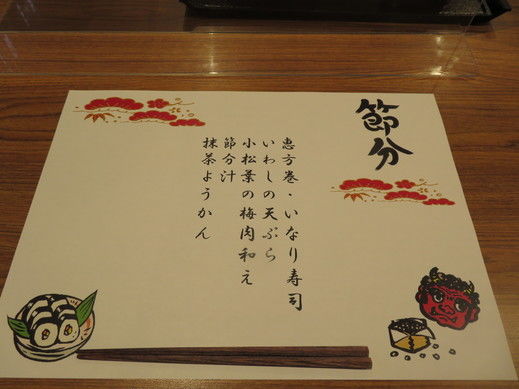 節分
恵方巻・いなり寿司
いわしの天ぷら
小松葉の梅肉和え
節分汁
抹茶ようかん